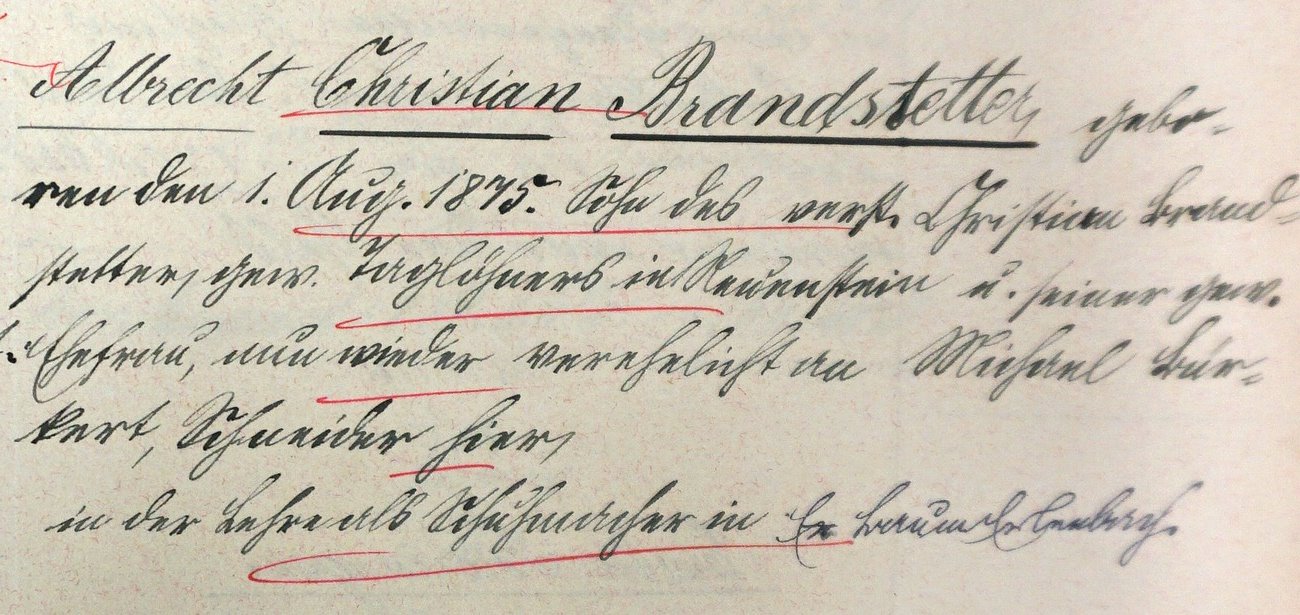 Albrecht Christian Brandstetter, gebo-
ren den 1. Aug. 1875. Sohn des verst. Christian Brand-
stetter, gew. Taglöhners in Neuenstein u. seiner gew.
Ehefrau, nun wieder verehelicht an Michael Bür-
kert, Schneider hier,
in der Lehre als Schuhmacher in Baumerlenbach.